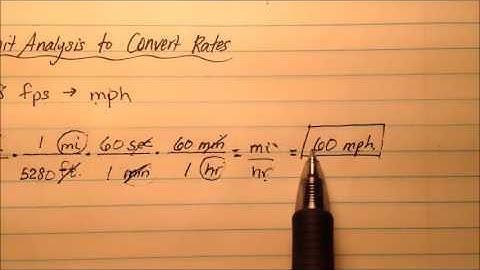 Analysis to Convert Rates
fps → mph
1 mi / 5280 ft. · 60 sec / 1 min · 60 min / 1 hr = mi / hr = 60 mph